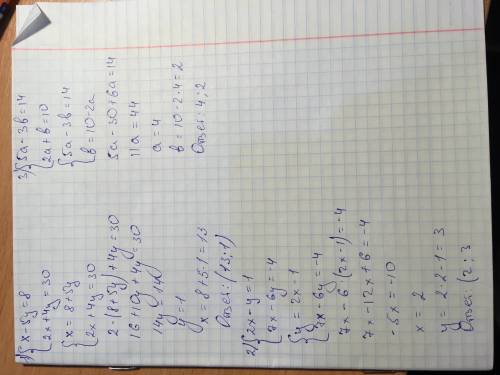 1) { x - 5y = 8
2x + 4y = 30
{ x = 8 + 5y
2x + 4y = 30
2·(8 + 5y) + 4y = 30
16 + 10y + 4y = 30
14y = 14
y = 1
x = 8 + 5·1 = 13
Ответ: (13; 1)
2) { 2x - y = 1
7x - 6y = -4
{ y = 2x - 1
7x - 6y = -4
7x - 6(2x - 1) = -4
7x - 12x + 6 = -4
-5x = -10
x = 2
y = 2·2 - 1 = 3
Ответ: (2; 3
3) { 5a - 3b = 14
2a + b = 10
{ 5a - 3b = 14
b = 10 - 2a
5a - 30 + 6a = 14
11a = 44
a = 4
b = 10 - 2·4 = 2
Ответ: 4; 2